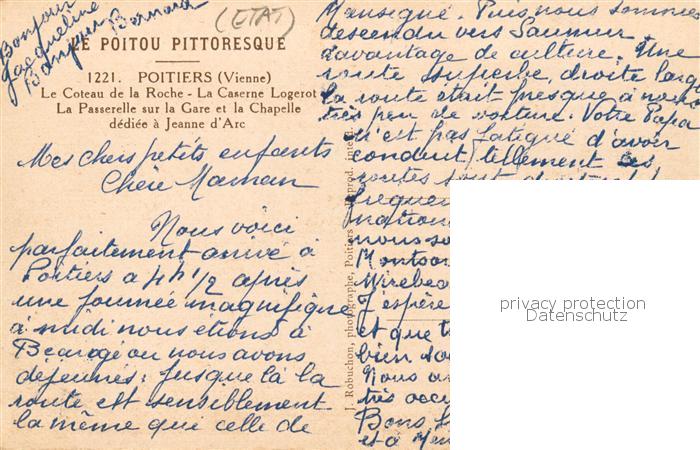 Bonjour
Jacqueline
Bonjour Bernard
(ETAT)
LE POITOU PITTORESQUE
1221. POITIERS (Vienne)
Le Coteau de la Roche - La Caserne Logerot
La Passerelle sur la Gare et la Chapelle
dédiée à Jeanne d'Arc
Mes chers petits enfants
Chère Maman
Nous voici
parfaitement arrivé à
Poitiers a 4h 1/2 après
une journée magnifique
à midi nous etions à
Beaugé ou nous avons
déjeunés. Jusque là la
route est sensiblement
la même que celle de
J. Robuchon, photographe, Poitiers
Reprod. interd.
Mansigné. Puis nous sommes
descendu vers Saumur
davantage de culture. Une
route superbe, droite large
la route etait presque à nous
très peu de voiture. Votre Papa
n'est pas fatigué d'avoir
conduit tellement ces
routes sont
nous so
Montsor
Mirebea
J'espère
et que t
bien so
Nous av
très occu
Bons
et à
privacy protection
Datenschutz